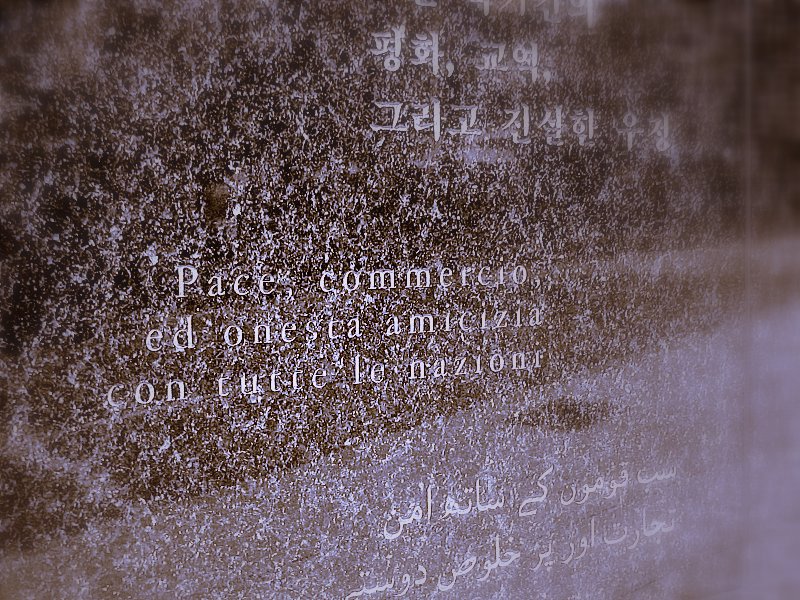 평화, 교역,
그리고 진실한 우정
Pace, commercio,
ed onesta amicizia
con tutte le nazioni
سب قوموں کے ساتھ امن
تجارت اور پر خلوص دوستی